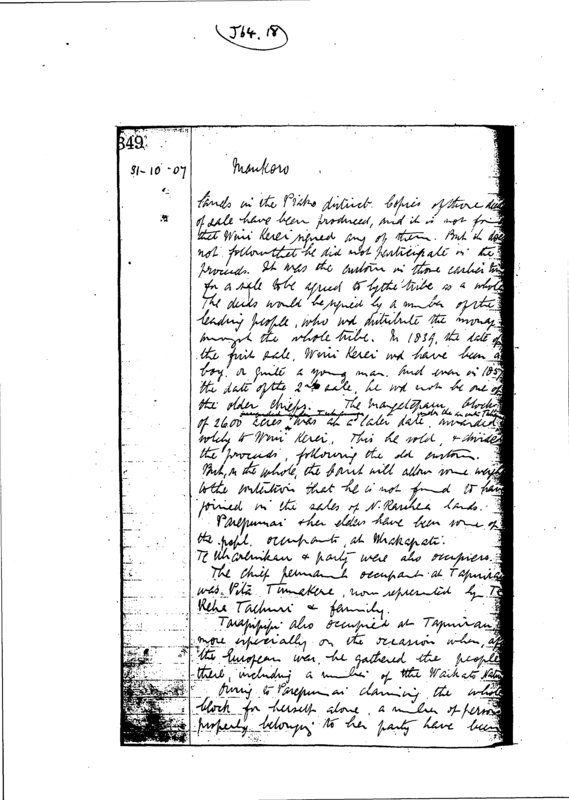 J64. 18
349.
31-10-07
Maukoro
lands in the Piako district. Copies of these deeds
of sale have been produced, and it is not found
that Wini Kerei signed any of them. But it does
not follow that he did not participate in the
proceeds. It was the custom in those earlier times
for a sale to be agreed to by the tribe as a whole
The deeds would be signed by a number of the
leading people, who wd distribute the money
amongst the whole tribe. In 1839, the date of
the first sale, Wini Kerei wd have been a
boy or quite a young man. And even in 1857
the date of the 2nd sale, he wd not be one of
the older chiefs. The block
of 2600 acres was at a later date awarded
solely to Wini Kerei. This he sold, & divided
the proceeds, following the old custom.
But, on the whole, the Court will allow some weight
to the contention that he is not found to have
joined in the sales of lands.
Parepumai & her elders have been some of
the occupants, at
& party were also occupiers.
The chief permanent occupant at
was Pita, now represented by Te
& family.
also occupied at
more especially on the occasion when, after
the European war, he gathered the people
there, including a number of the Waikato
Owing to Parepumai claiming the whole
block for herself alone, a number of persons
properly belonging to her party have been